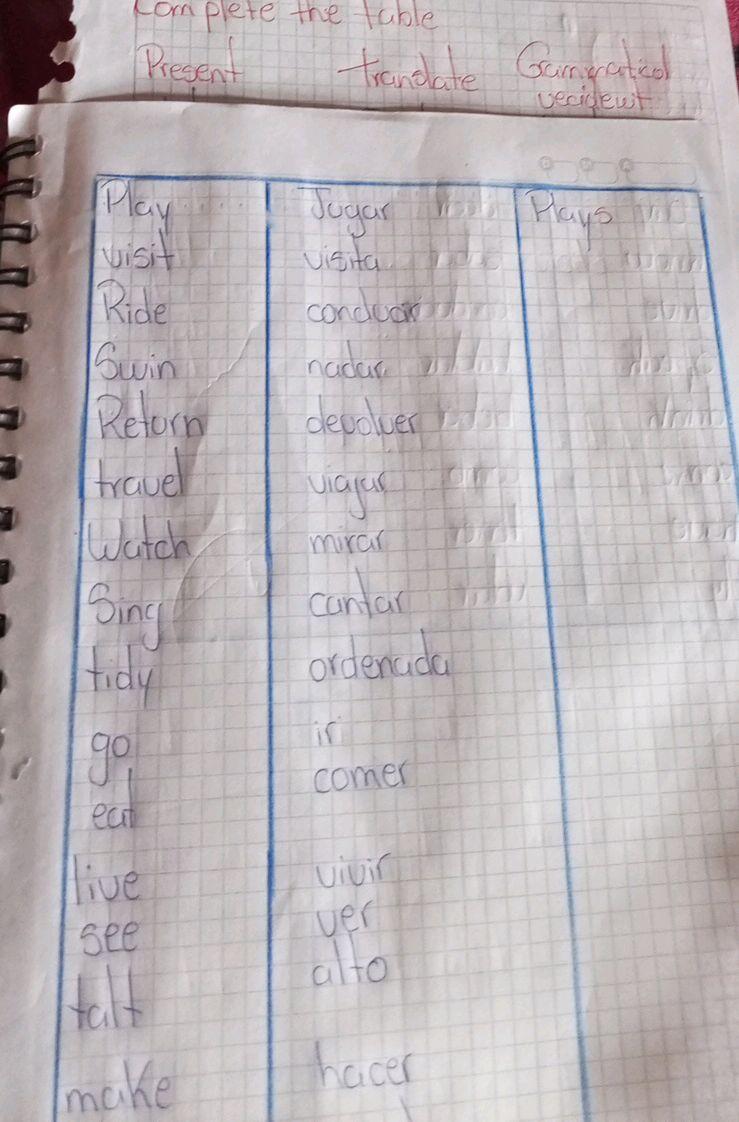 Complete the table
Present translate Gammatical
Play Jugar Plays
visit visita
Ride conducir
Swin nadar
Return devolver
travel viajar
Watch mirar
Sing cantar
tidy ordenada
go ir
eat comer
live vivir
see ver
talt alto
make hacer